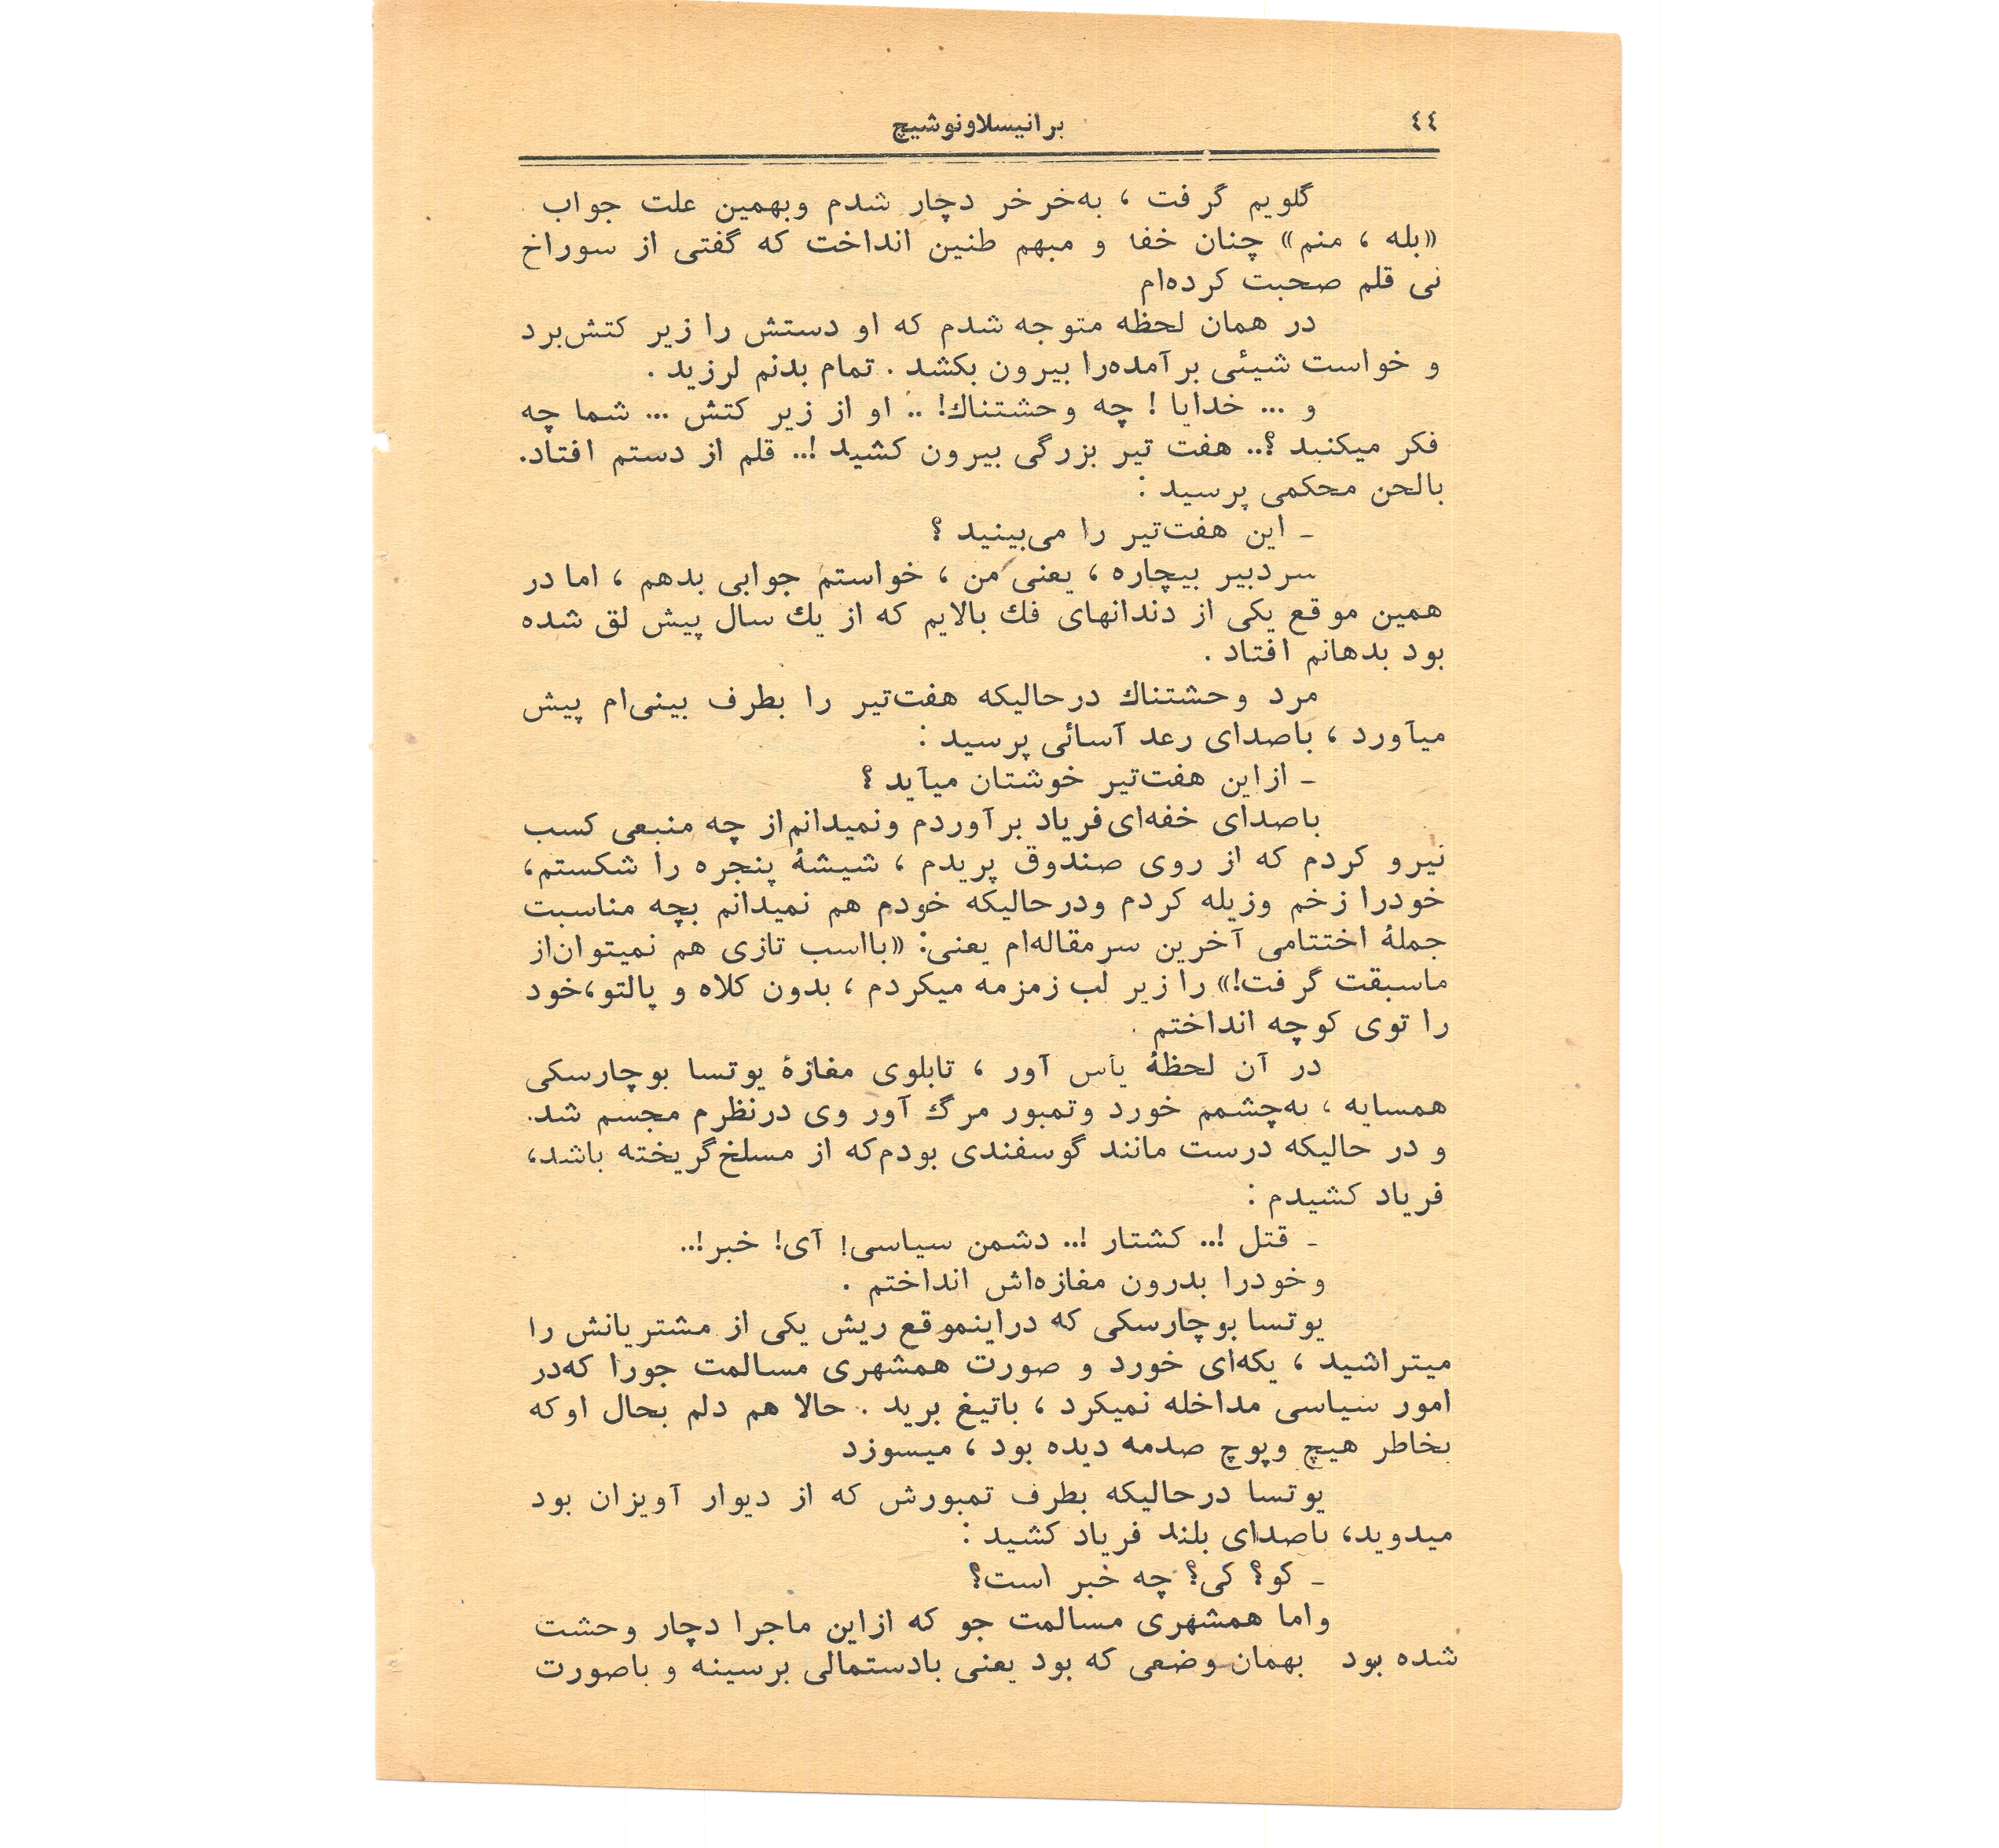 ٤٤
برانیسلاونوشیچ
گلویم گرفت ، به‌خرخر دچار شدم وبهمین علت جواب
«بله ، منم» چنان خفا و مبهم طنین انداخت که گفتی از سوراخ
نی قلم صحبت کرده‌ام
در همان لحظه متوجه شدم که او دستش را زیر کتش‌برد
و خواست شیئی برآمده‌را بیرون بکشد . تمام بدنم لرزید .
و ... خدایا ! چه وحشتناك! .. او از زیر کتش ... شما چه
فکر میکنید ؟.. هفت تیر بزرگی بیرون کشید !.. قلم از دستم افتاد.
بالحن محکمی پرسید :
ـ این هفت‌تیر را می‌بینید ؟
سردبیر بیچاره ، یعنی من ، خواستم جوابی بدهم ، اما در
همین موقع یکی از دندانهای فك بالایم که از یك سال پیش لق شده
بود بدهانم افتاد .
مرد وحشتناك درحالیکه هفت‌تیر را بطرف بینی‌ام پیش
میآورد ، باصدای رعد آسائی پرسید :
ـ ازاین هفت‌تیر خوشتان میآید ؟
باصدای خفه‌ای‌فریاد برآوردم ونمیدانم‌از چه منبعی کسب
نیرو کردم که از روی صندوق پریدم ، شیشهٔ پنجره را شکستم،
خودرا زخم وزیله کردم ودرحالیکه خودم هم نمیدانم بچه مناسبت
جملهٔ اختتامی آخرین سرمقاله‌ام یعنی: «بااسب تازی هم نمیتوان‌از
ماسبقت گرفت!» را زیر لب زمزمه میکردم ، بدون کلاه و پالتو،خود
را توی کوچه انداختم .
در آن لحظهٔ یأس آور ، تابلوی مغازهٔ یوتسا بوچارسکی
همسایه ، به‌چشمم خورد وتمبور مرگ آور وی درنظرم مجسم شد.
و در حالیکه درست مانند گوسفندی بودم‌که از مسلخ‌گریخته باشد،
فریاد کشیدم :
ـ قتل !.. کشتار !.. دشمن سیاسی! آی! خبر!..
وخودرا بدرون مغازه‌اش انداختم .
یوتسا بوچارسکی که دراینموقع ریش یکی از مشتریانش را
میتراشید ، یکه‌ای خورد و صورت همشهری مسالمت جورا که‌در
امور سیاسی مداخله نمیکرد ، باتیغ برید . حالا هم دلم بحال اوکه
بخاطر هیچ وپوچ صدمه دیده بود ، میسوزد
یوتسا درحالیکه بطرف تمبورش که از دیوار آویزان بود
میدوید، باصدای بلند فریاد کشید :
ـ کو؟ کی؟ چه خبر است؟
واما همشهری مسالمت جو که ازاین ماجرا دچار وحشت
شده بود بهمان وضعی که بود یعنی بادستمالی برسینه و باصورت